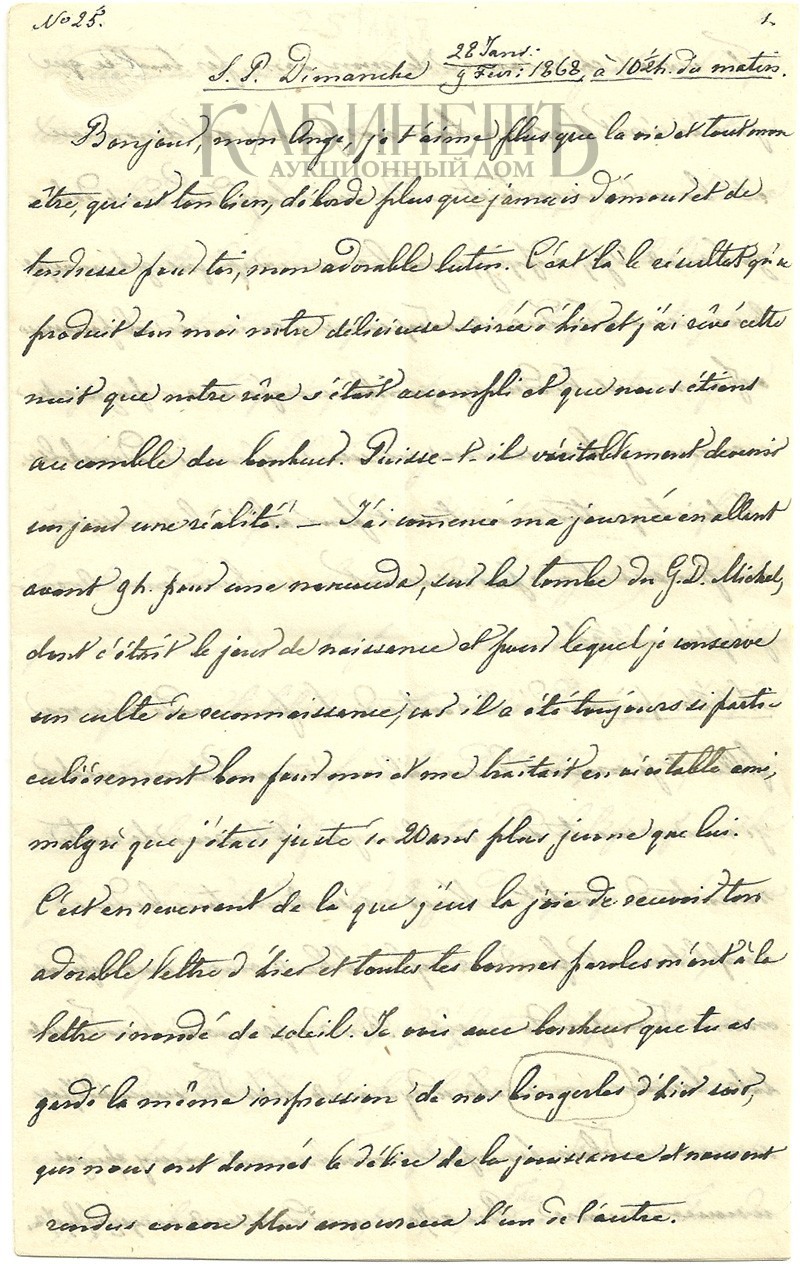 No 25.
1.
S. P. Dimanche 28 Janv: / 9 Fevr: 1868, à 10 ½ h. du matin.
КАБИНЕТЪ
АУКЦИОННЫЙ ДОМ
Bonjour, mon Ange, je t'aime plus que la vie et tout mon
être, qui est ton bien, déborde plus que jamais d'amour et de
tendresse pour toi, mon adorable lutin. C'est là le résultat qu'a
produit sur moi notre délicieuse soirée d'hier et j'ai rêvé cette
nuit que notre rêve s'était accompli et que nous étions
au comble du bonheur. Puisse-t-il véritablement devenir
un jour une réalité! – J'ai commencé ma journée en allant
avant 9 h. pour une , sur la tombe du G. D. Michel,
dont c'était le jour de naissance et pour lequel je conserve
un culte de reconnaissance, car il a été toujours si parti-
culièrement bon pour moi et me traitait en véritable ami,
malgré que j'étais juste de 20 ans plus jeune que lui.
C'est en revenant de là que j'eus la joie de recevoir ton
adorable lettre d'hier et toutes tes bonnes paroles m'ont à la
lettre inondé de soleil. Je vois avec bonheur que tu as
gardé la même impression de nos bingerles d'hier soir,
qui nous ont donnés le délire de la jouissance et nous ont
rendus encore plus amoureux l'un de l'autre.